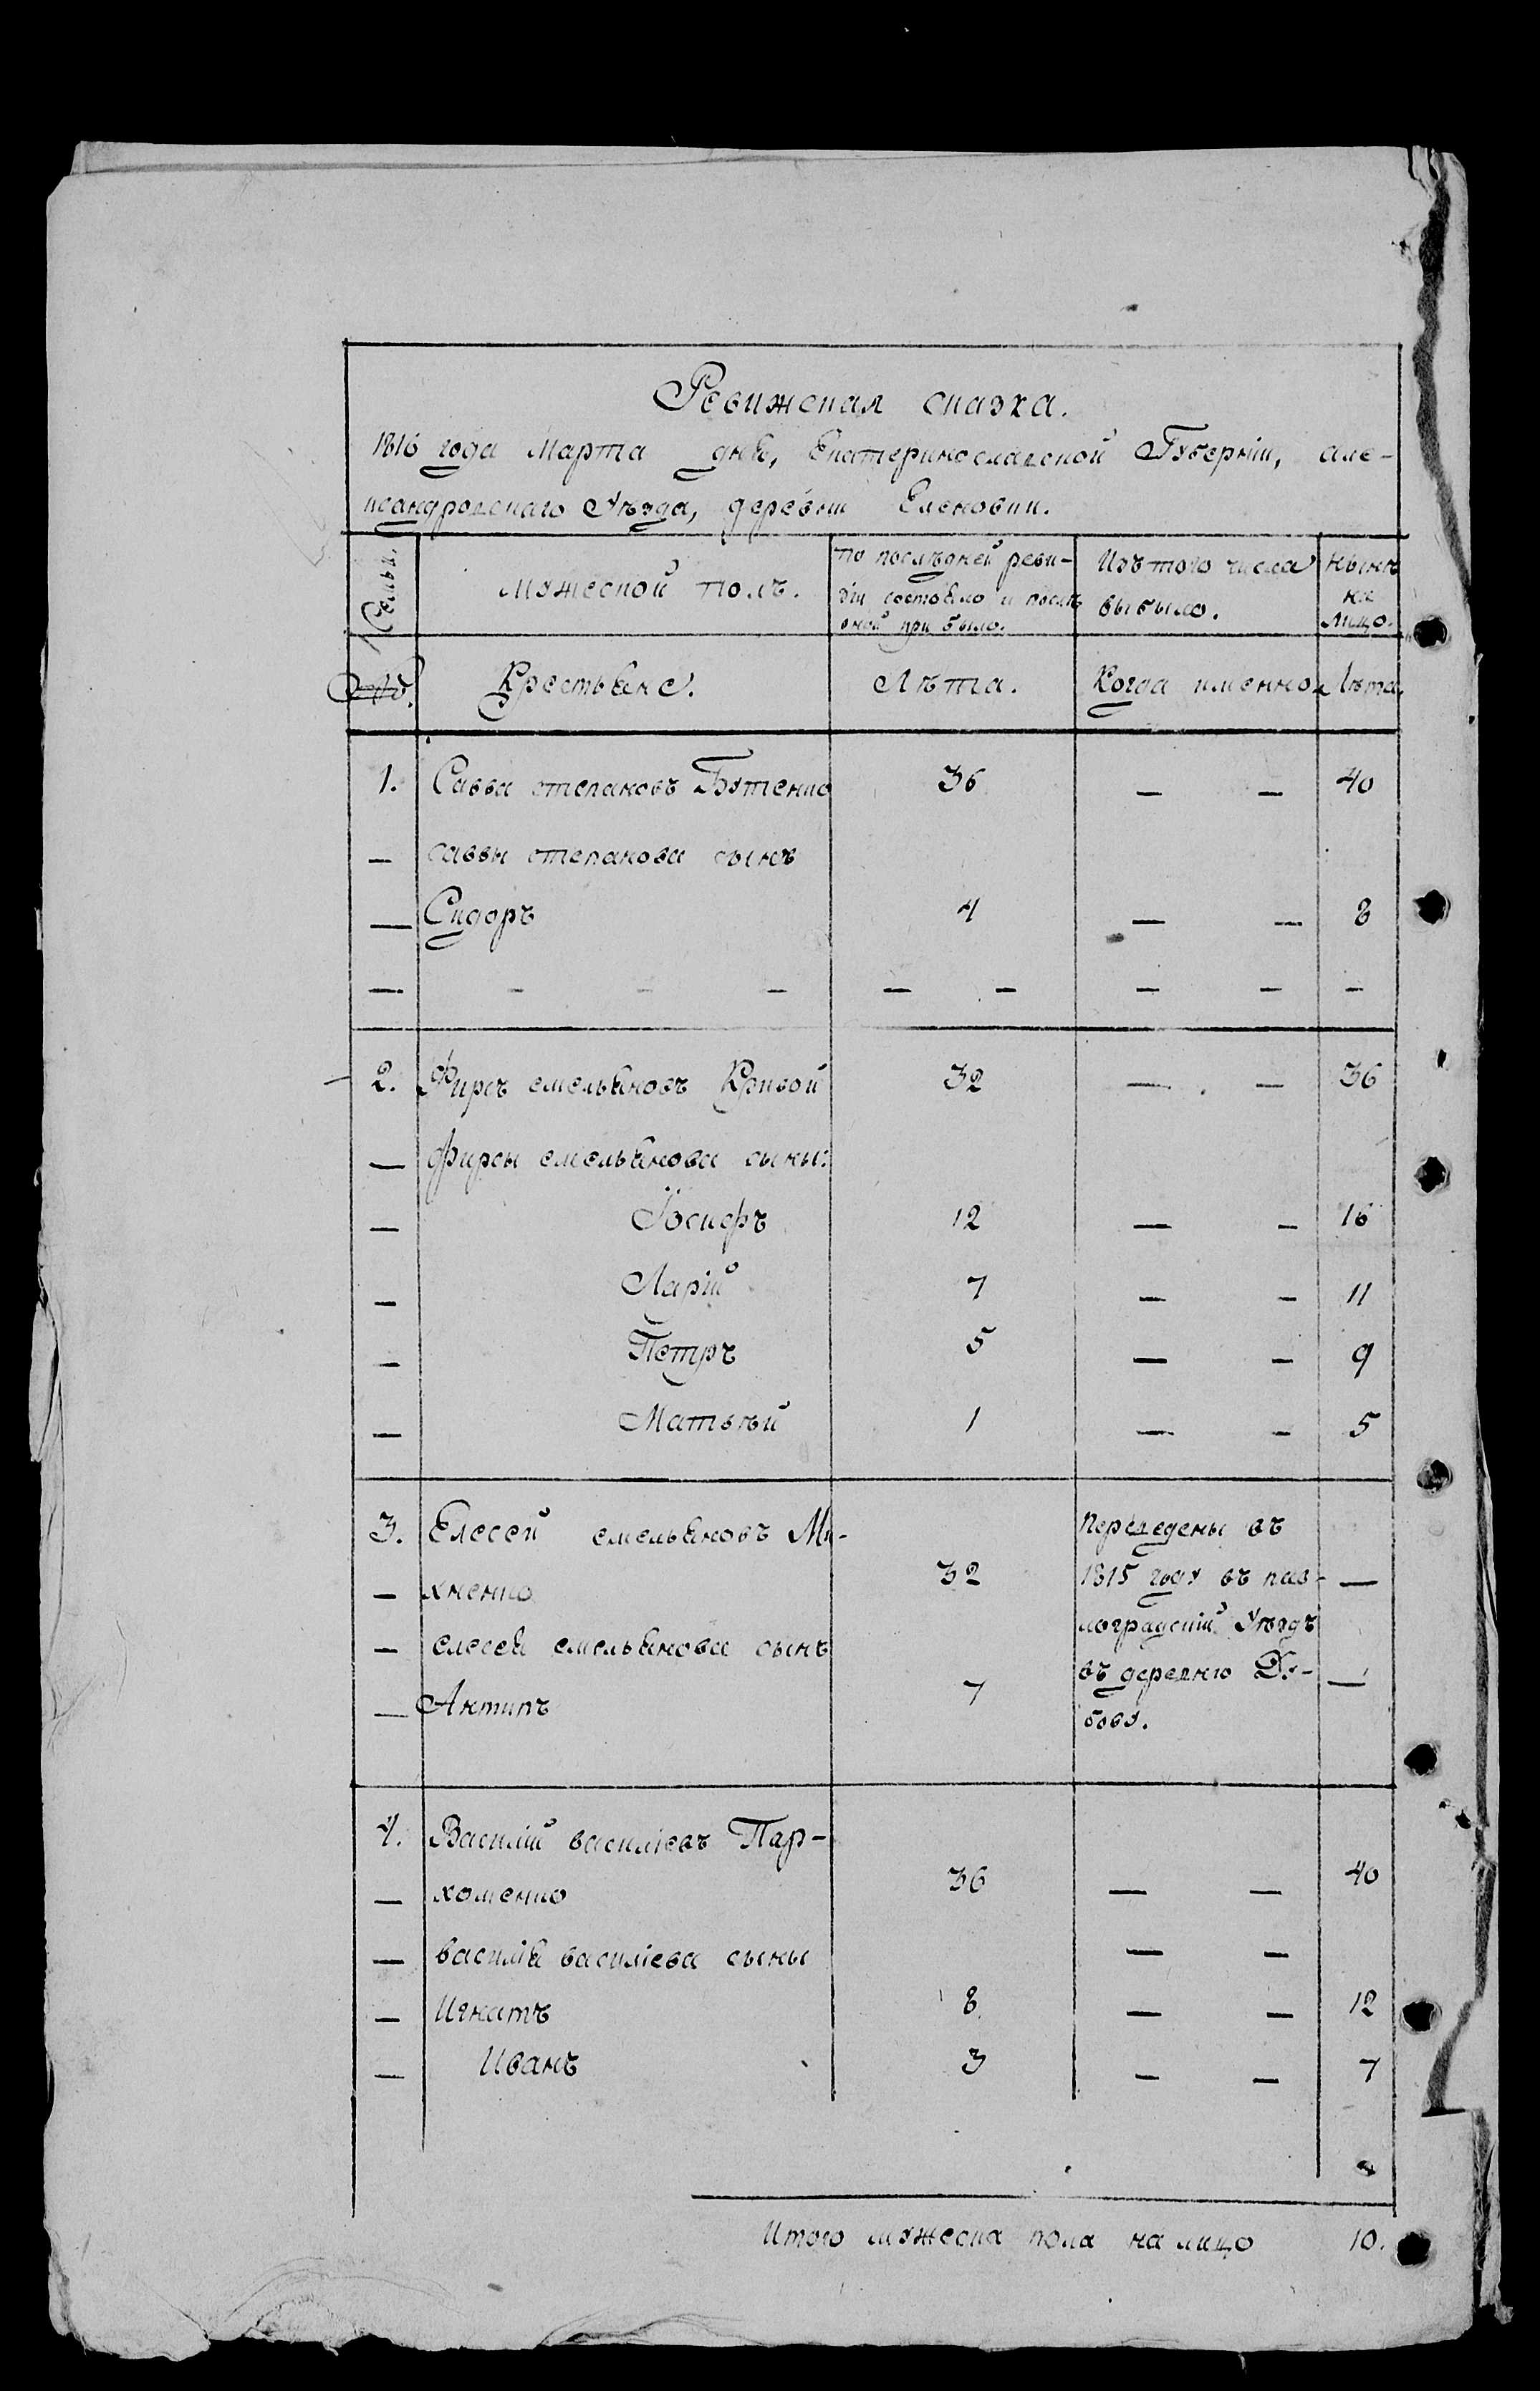 Ревижская сказка.
1816 года Марта дня, Екатеринославской Губерніи, але-
ксандровскаго Уѣзда, деревни Еленовки.
Семьи.
мужеской полъ.
По послѣдней реви-
зіи состояло и послѣ
оной прибыло.
Изъ того числа
выбыло.
Нынѣ
на
лицо.
Крестьяне.
Лѣта.
Когда именно.
Лѣта.
1. Савва степановъ Бутенко 36 — — 40
— саввы степанова сынъ
— Сидоръ 4 — — 8
— - - - — — — — —
2. Фирсъ емельяновъ Кривой 32 — — 36
— фирсы емельянова сыны:
— Іосифъ 12 — — 16
— Ларіи 7 — — 11
— Петръ 5 — — 9
— Матвѣй 1 — — 5
3. Елесей емельяновъ Ми-
— хненко 32 —
— елесея емельянова сынъ
— Антипъ 7 —
Переведены въ
1815 году въ пав-
лоградскій Уѣздъ
въ деревню Ду-
бову.
4. Василій василіевъ Пар-
— хоменко 36 — — 40
— василія василіева сыны — —
— Игнатъ 8 — — 12
— Иванъ 3 — — 7
Итого мужеска пола на лицо 10.